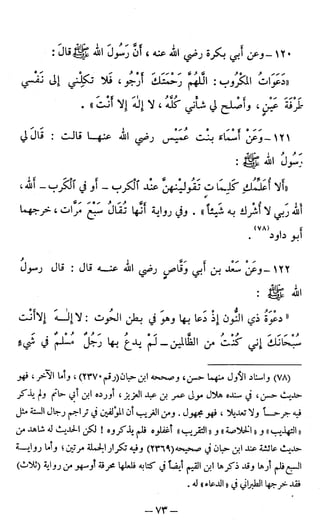 ١٢٠ - وعن أبي بكرة رضي الله عنه ، أَنَّ رَسُولَ الله ﷺ قالَ :
«دَعَوَاتُ المَكْرُوبِ : اللَّهُمَّ رَحْمَتَكَ أَرْجُو ، فَلا تَكِلْنِي إلى نَفْسي
طَرْفَةَ عَيْنٍ ، وأَصْلِحْ لي شأني كُلَّهُ ، لا إِلهَ إلا أَنْتَ» .
١٢١ - وَعَنْ أَسْمَاءَ بنت عُمَيْسٍ رضي الله عنهـا قالت : قَالَ لي
رَسُولُ الله ﷺ :
«أَلا أُعَلِّمُكِ كَلِمَاتٍ تَقُولينَهُنَّ عِنْدَ الكَرب - أو في الكَرب - الله،
الله رَبي لا أُشْرِكُ به شَيْئاً» . وفي رواية أنَّها تُقَالُ سَبْعَ مَرَّات ، خرجهما
أبو داود (٧٨) .
١٢٢ - وعَنْ سَعْد بن أبي وَقَّاصٍ رضي الله عنـه قال : قال رسولُ
الله ﷺ :
«دعْوَةُ ذي النُّون إذْ دَعا بها وهوَ في بطن الحُوت : لا إِلـهَ إلاأنْتَ
سُبْحَانَكَ إني كُنْتُ منَ الظَّالمين - لَمْ يدعُ بها رَجُلٌ مُسْلمٌ في شَيءٍ
(٧٨) وإسناد الأول منهما حسن، وصححه ابن حبان(رقم ٢٣٧٠) ، وأما الآخر، فهو
حديث حسن، في سنده هلال مولى عمر بن عبد العزيز، أورده ابن أبي حاتم ولم يذكر
فيه جرحـاً ولا تعديلا ، فهو مجهول . ومن الغريب أن المؤلفين في تراجم رجال الستة مثل
«التهذيب» و «الخلاصة» و «التقريب» أغفلوه فلم يذكروه ! لكن الحديث له شاهد من
حديث عائشة عند ابن حبان في صحيحه(٢٣٦٩) وفيه تكرار الجملة مرتين؛ وأما روايـة
السبع فلم أرها وقد ذكرها ابن القيم أيضاً في كتابه فلعلها محرفة أوسهو من رواية (ثلاث)
فقد خرجها الطبراني في «الدعاء» له .
- ٧٣ -